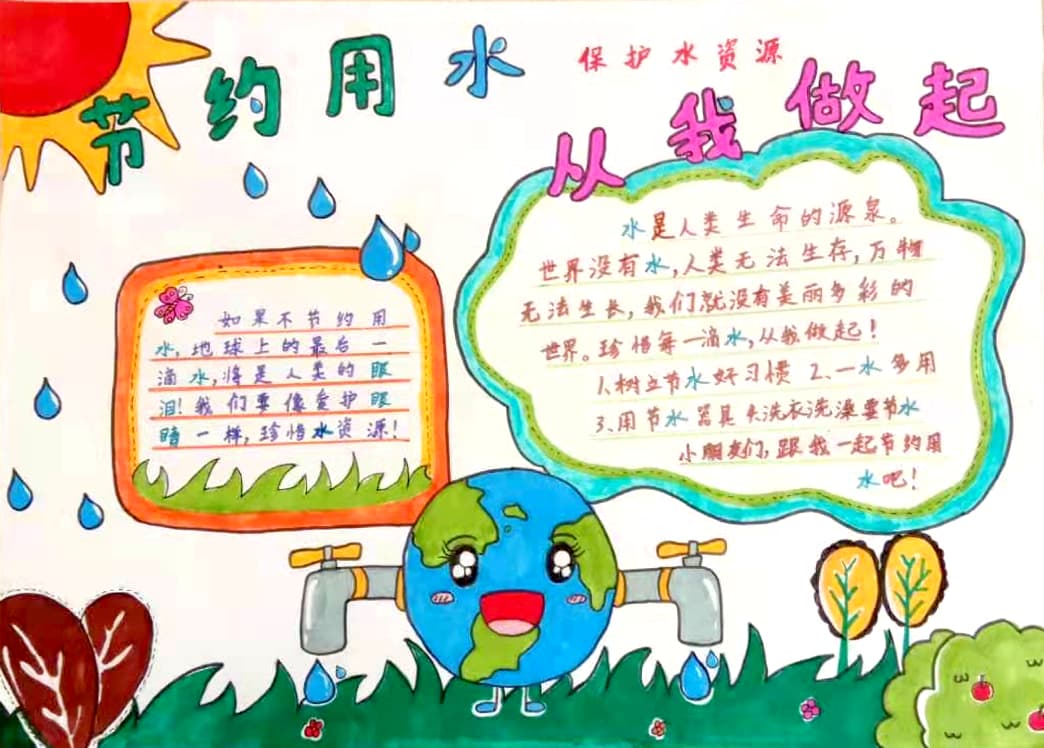 节约用水
保护水资源
从我做起
如果不节约用
水，地球上的最后一
滴水，将是人类的眼
泪！我们要像爱护眼
睛一样，珍惜水资源！
水是人类生命的源泉。
世界没有水，人类无法生存，万物
无法生长，我们就没有美丽多彩的
世界。珍惜每一滴水，从我做起！
1.树立节水好习惯 2.一水多用
3.用节水器具 4.洗衣洗澡要节水
小朋友们，跟我一起节约用
水吧！